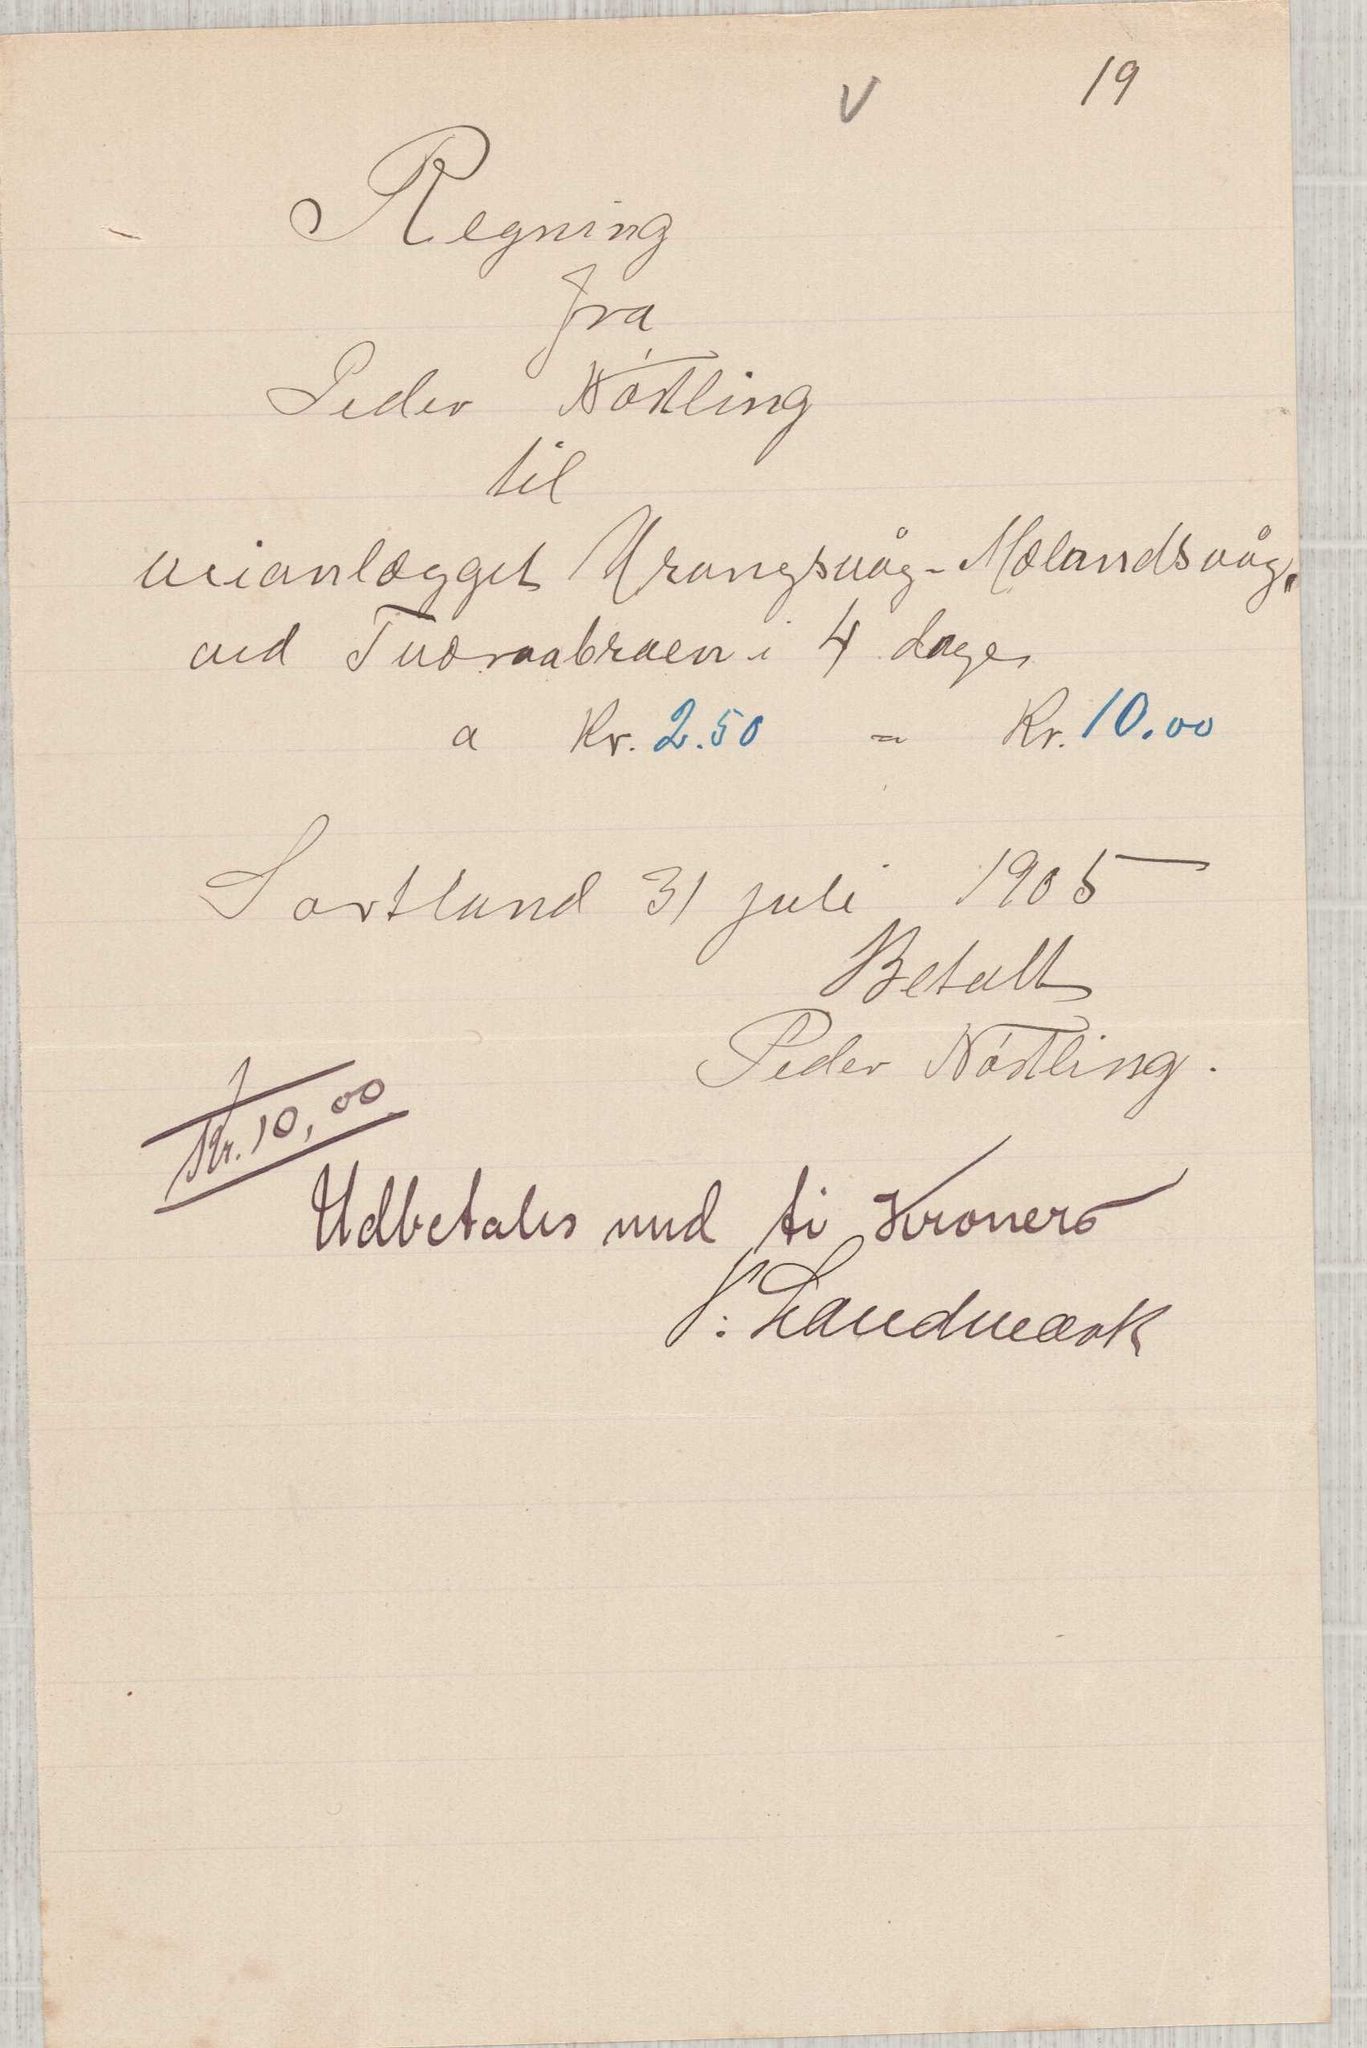 V 19
Regning
fra
Peder Nóstling
til
veianlægget Urangsvåg-Mælandsvåg,
ved Tværaabraen i 4 dage
a Kr. 2.50 = Kr. 10.00
Sortland 31 juli 1905
Betalt
Peder Nóstling.
Kr. 10,00
Udbetales med ti Kroner
Landmark